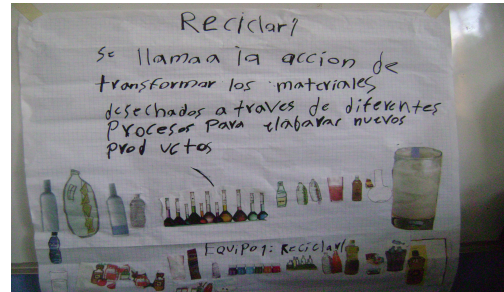 Reciclar1
se llamaa la accion de
transformar los materiales
desechados a traves de diferentes
Procesos Para elabarar nuevos
productos
EQUIPO 1: Reciclar1